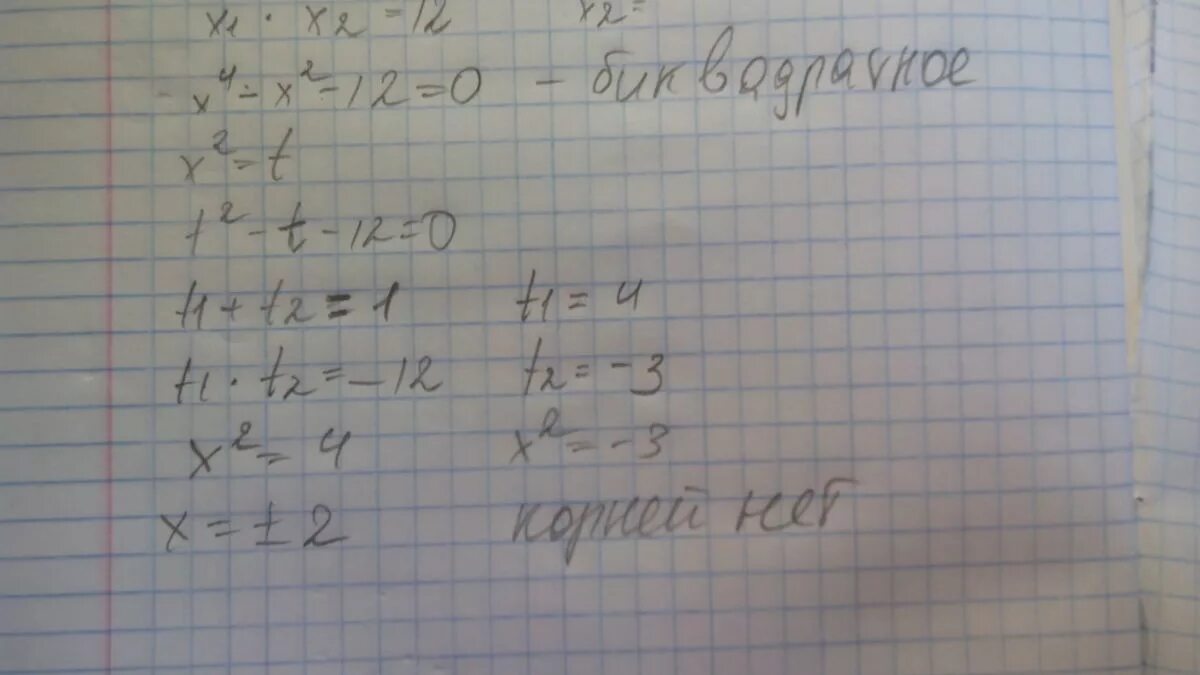 x₁ · x₂ = 12 x₂ =
x⁴ - x² - 12 = 0 - биквадратное
x² = t
t² - t - 12 = 0
t₁ + t₂ = 1 t₁ = 4
t₁ · t₂ = -12 t₂ = -3
x² = 4 x² = -3
x = ± 2 корней нет